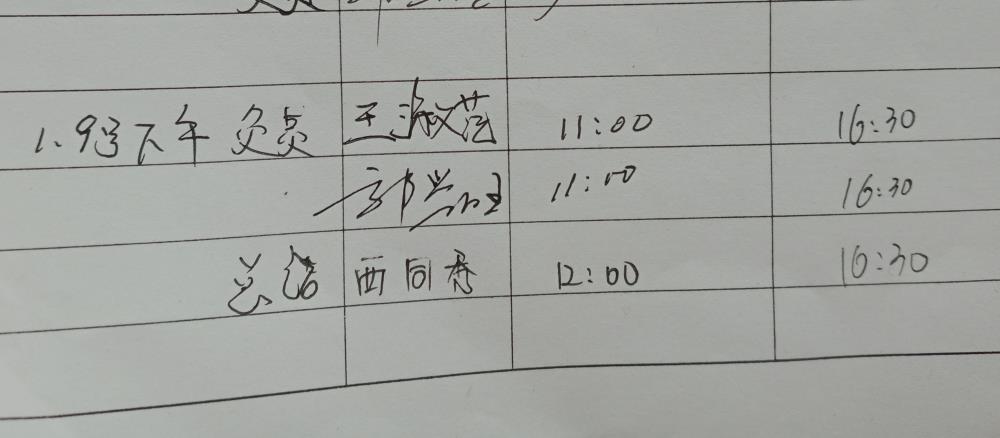 1.9号下午 灸贡 王淑范 11:00 16:30
郭兴旺 11:00 16:30
总结 西同春 12:00 16:30